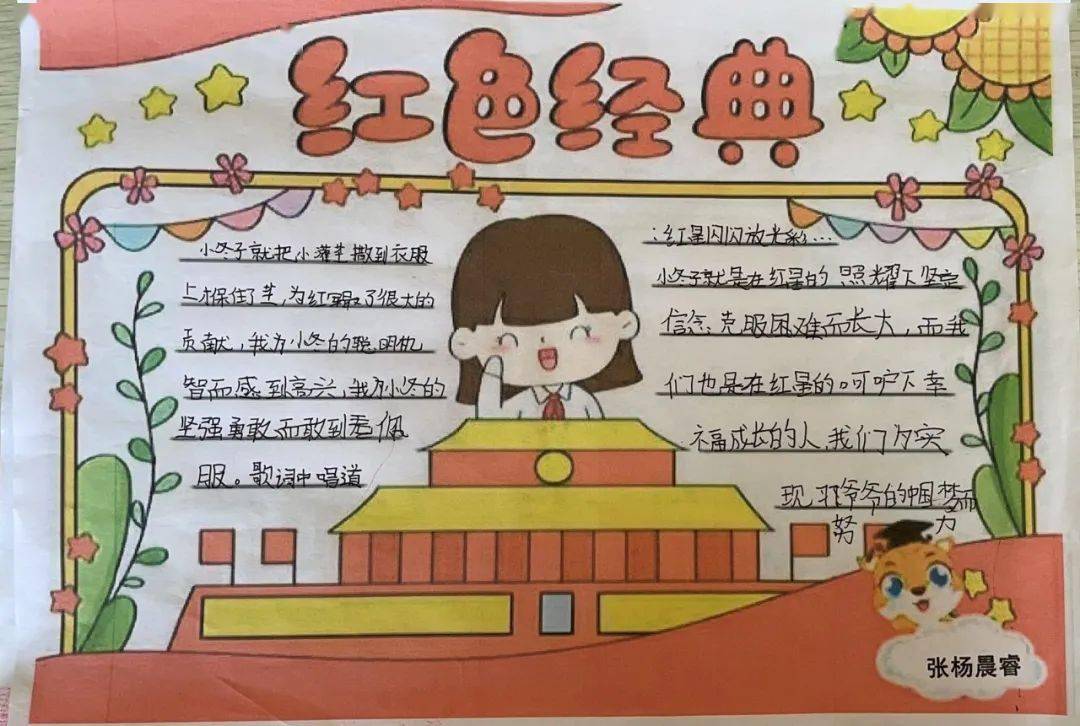 红色经典
小冬子就把小薄芏撒到衣服
上保住芏,为红军取了很大的
贡献,我为小冬的聪明机
智而感到高兴,我为小冬的
坚强勇敢而敢到君佩
服。歌词中唱道
:红星闪闪放光彩…
小冬子就是在红星的照耀下坚定
信念,克服困难而长大,而我
们也是在红星的呵护下幸
福成长的人,我们为实
现 爷爷的中国梦而
努 力
张杨晨睿